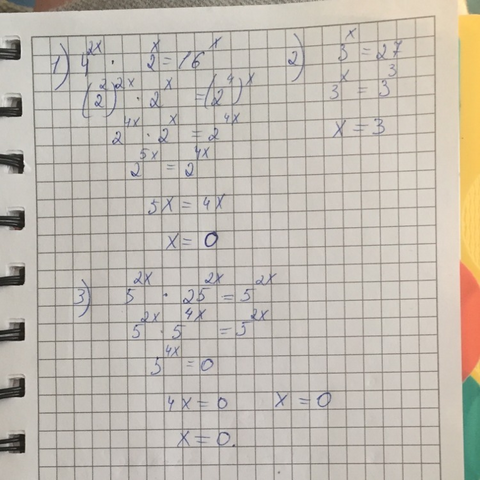 1) 4^{2x} · 2^x = 16^x
(2^2)^{2x} · 2^x = (2^4)^x
2^{4x} · 2^x = 2^{4x}
2^{5x} = 2^{4x}
5x = 4x
x = 0
2) 3^x = 27
3^x = 3^3
x = 3
3) 5^{2x} · 25^{2x} = 5^{2x}
5^{2x} · 5^{4x} = 5^{2x}
5^{4x} = 0
4x = 0 x = 0
x = 0.